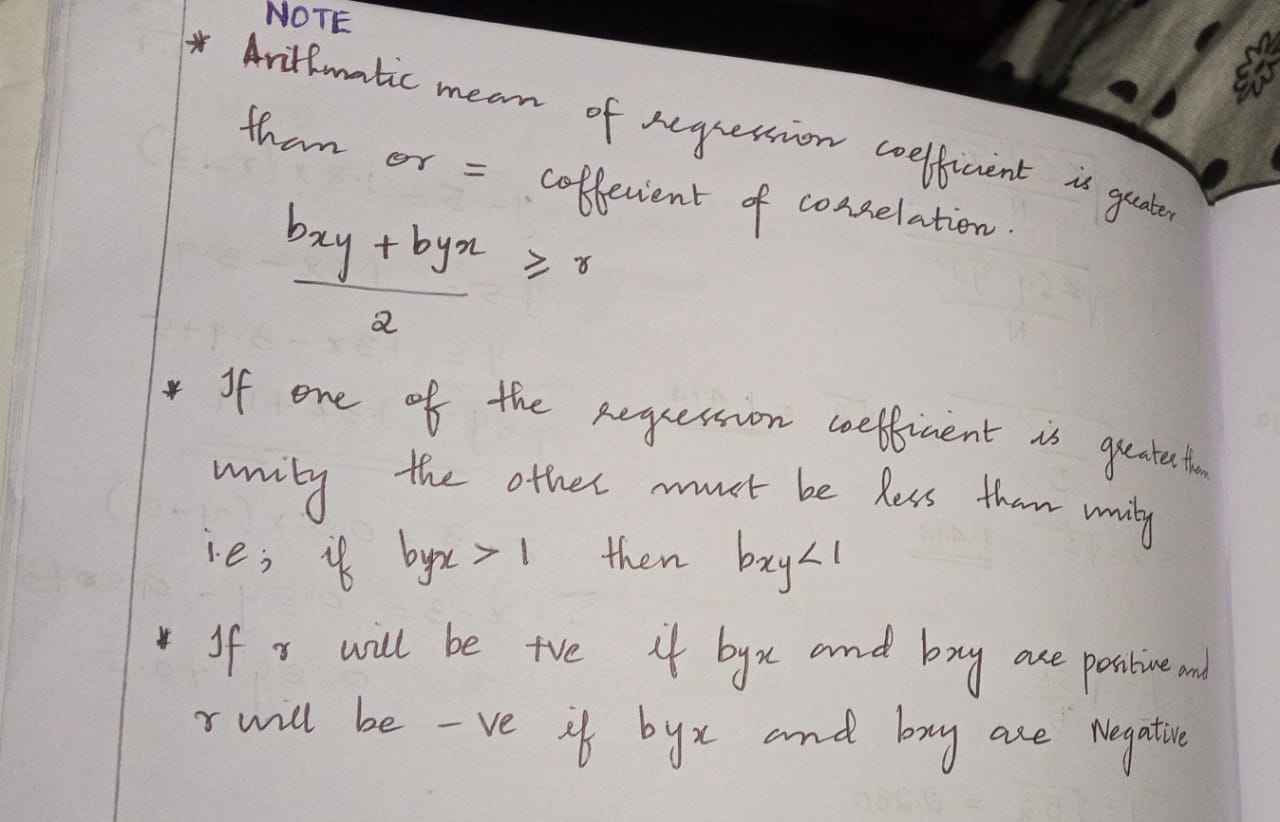 NOTE
* Arithmatic mean of regression coefficient is greater
than or = coffecient of correlation.
bxy + byx ≥ r
2
* If one of the regression coefficient is greater than
unity the other must be less than unity
i.e; if byx > 1 then bxy < 1
* If r will be +ve if byx and bxy are positive and
r will be -ve if byx and bxy are Negative